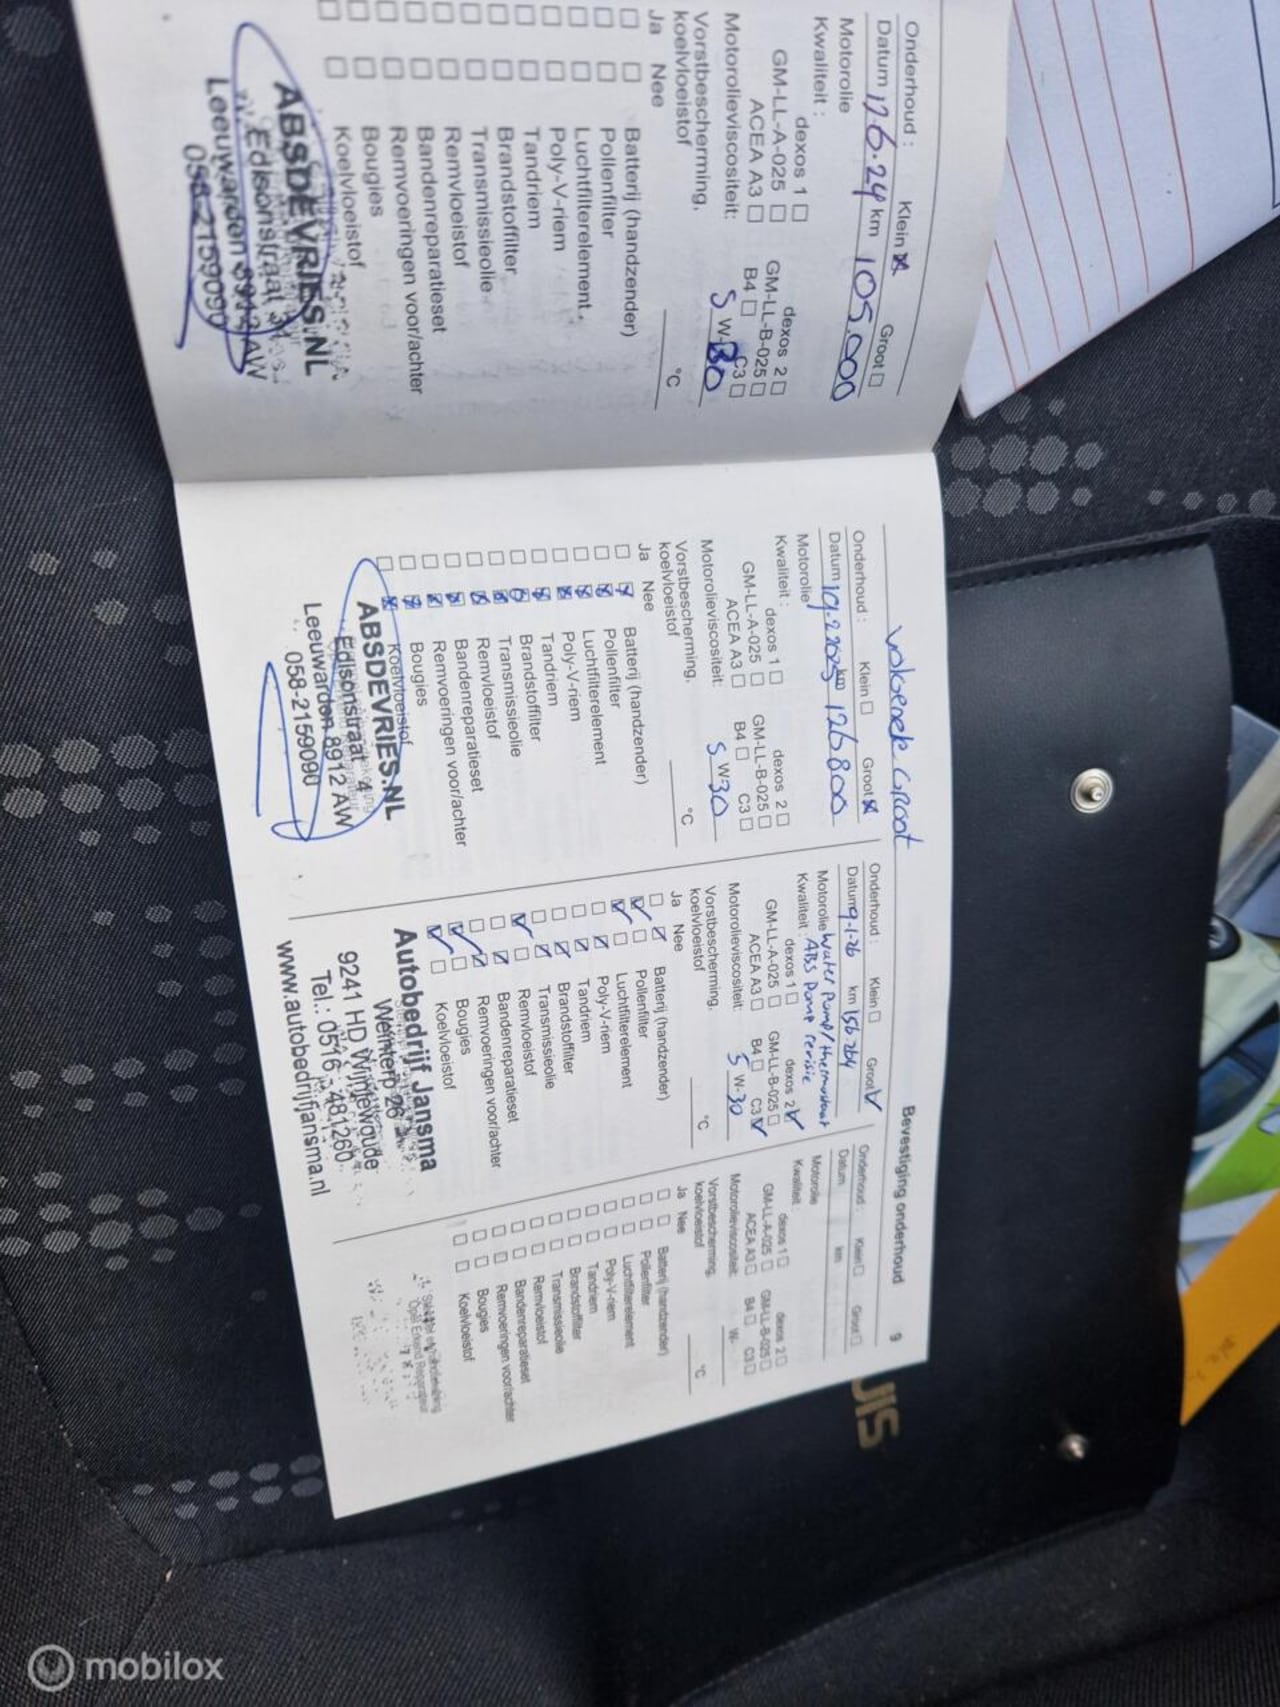 Onderhoud : Klein ☒ Groot ☐
Datum 17-6-24 km 105.000
Motorolie
Kwaliteit :
dexos 1 ☐ dexos 2 ☐
GM-LL-A-025 ☐ GM-LL-B-025 ☐
ACEA A3 ☐ B4 ☐ C3 ☐
Motorolieviscositeit: 5 W-30
Vorstbescherming,
koelvloeistof °C
Ja Nee
☐ ☐ Batterij (handzender)
☐ ☐ Pollenfilter
☐ ☐ Luchtfilterelement
☐ ☐ Poly-V-riem
☐ ☐ Tandriem
☐ ☐ Brandstoffilter
☐ ☐ Transmissieolie
☐ ☐ Remvloeistof
☐ ☐ Bandenreparatieset
☐ ☐ Remvoeringen voor/achter
☐ ☐ Bougies
☐ ☐ Koelvloeistof
ABSDEVRIES.NL
Edisonstraat
Leeuwarden 8912 AW
058-2159090
Groot
Onderhoud : Klein ☐ Groot ☒
Datum km 126800
Motorolie
Kwaliteit :
dexos 1 ☐ dexos 2 ☐
GM-LL-A-025 ☐ GM-LL-B-025 ☐
ACEA A3 ☐ B4 ☐ C3 ☐
Motorolieviscositeit: 5 W-30
Vorstbescherming,
koelvloeistof °C
Ja Nee
☐ ☒ Batterij (handzender)
☐ ☒ Pollenfilter
☐ ☒ Luchtfilterelement
☐ ☒ Poly-V-riem
☐ ☒ Tandriem
☐ ☒ Brandstoffilter
☐ ☒ Transmissieolie
☐ ☒ Remvloeistof
☐ ☒ Bandenreparatieset
☐ ☒ Remvoeringen voor/achter
☐ ☒ Bougies
☐ ☒ Koelvloeistof
ABSDEVRIES.NL
Edisonstraat 4
Leeuwarden 8912 AW
058-2159090
Bevestiging onderhoud 9
Onderhoud : Klein ☐ Groot ☑
Datum 9-1-26 km 156.264
Motorolie Water Pump/thermostaat
Kwaliteit : ABS Pomp revisie
dexos 1 ☐ dexos 2 ☑
GM-LL-A-025 ☐ GM-LL-B-025 ☐
ACEA A3 ☐ B4 ☐ C3 ☑
Motorolieviscositeit: 5 W-30
Vorstbescherming,
koelvloeistof °C
Ja Nee
☐ ☑ Batterij (handzender)
☑ ☐ Pollenfilter
☑ ☐ Luchtfilterelement
☐ ☑ Poly-V-riem
☐ ☑ Tandriem
☐ ☑ Brandstoffilter
☐ ☑ Transmissieolie
☑ ☐ Remvloeistof
☐ ☑ Bandenreparatieset
☐ ☑ Remvoeringen voor/achter
☑ ☐ Bougies
☑ ☐ Koelvloeistof
Autobedrijf Jansma
Weinterp 26
9241 HD Wijnjewoude
Tel.: 0516 - 481260
www.autobedrijfjansma.nl
Onderhoud : Klein ☐ Groot ☐
Datum km
Motorolie
Kwaliteit :
dexos 1 ☐ dexos 2 ☐
GM-LL-A-025 ☐ GM-LL-B-025 ☐
ACEA A3 ☐ B4 ☐ C3 ☐
Motorolieviscositeit: W-
Vorstbescherming,
koelvloeistof °C
Ja Nee
☐ ☐ Batterij (handzender)
☐ ☐ Pollenfilter
☐ ☐ Luchtfilterelement
☐ ☐ Poly-V-riem
☐ ☐ Tandriem
☐ ☐ Brandstoffilter
☐ ☐ Transmissieolie
☐ ☐ Remvloeistof
☐ ☐ Bandenreparatieset
☐ ☐ Remvoeringen voor/achter
☐ ☐ Bougies
☐ ☐ Koelvloeistof
Opel Erkend Reparateur
JIS
mobilox